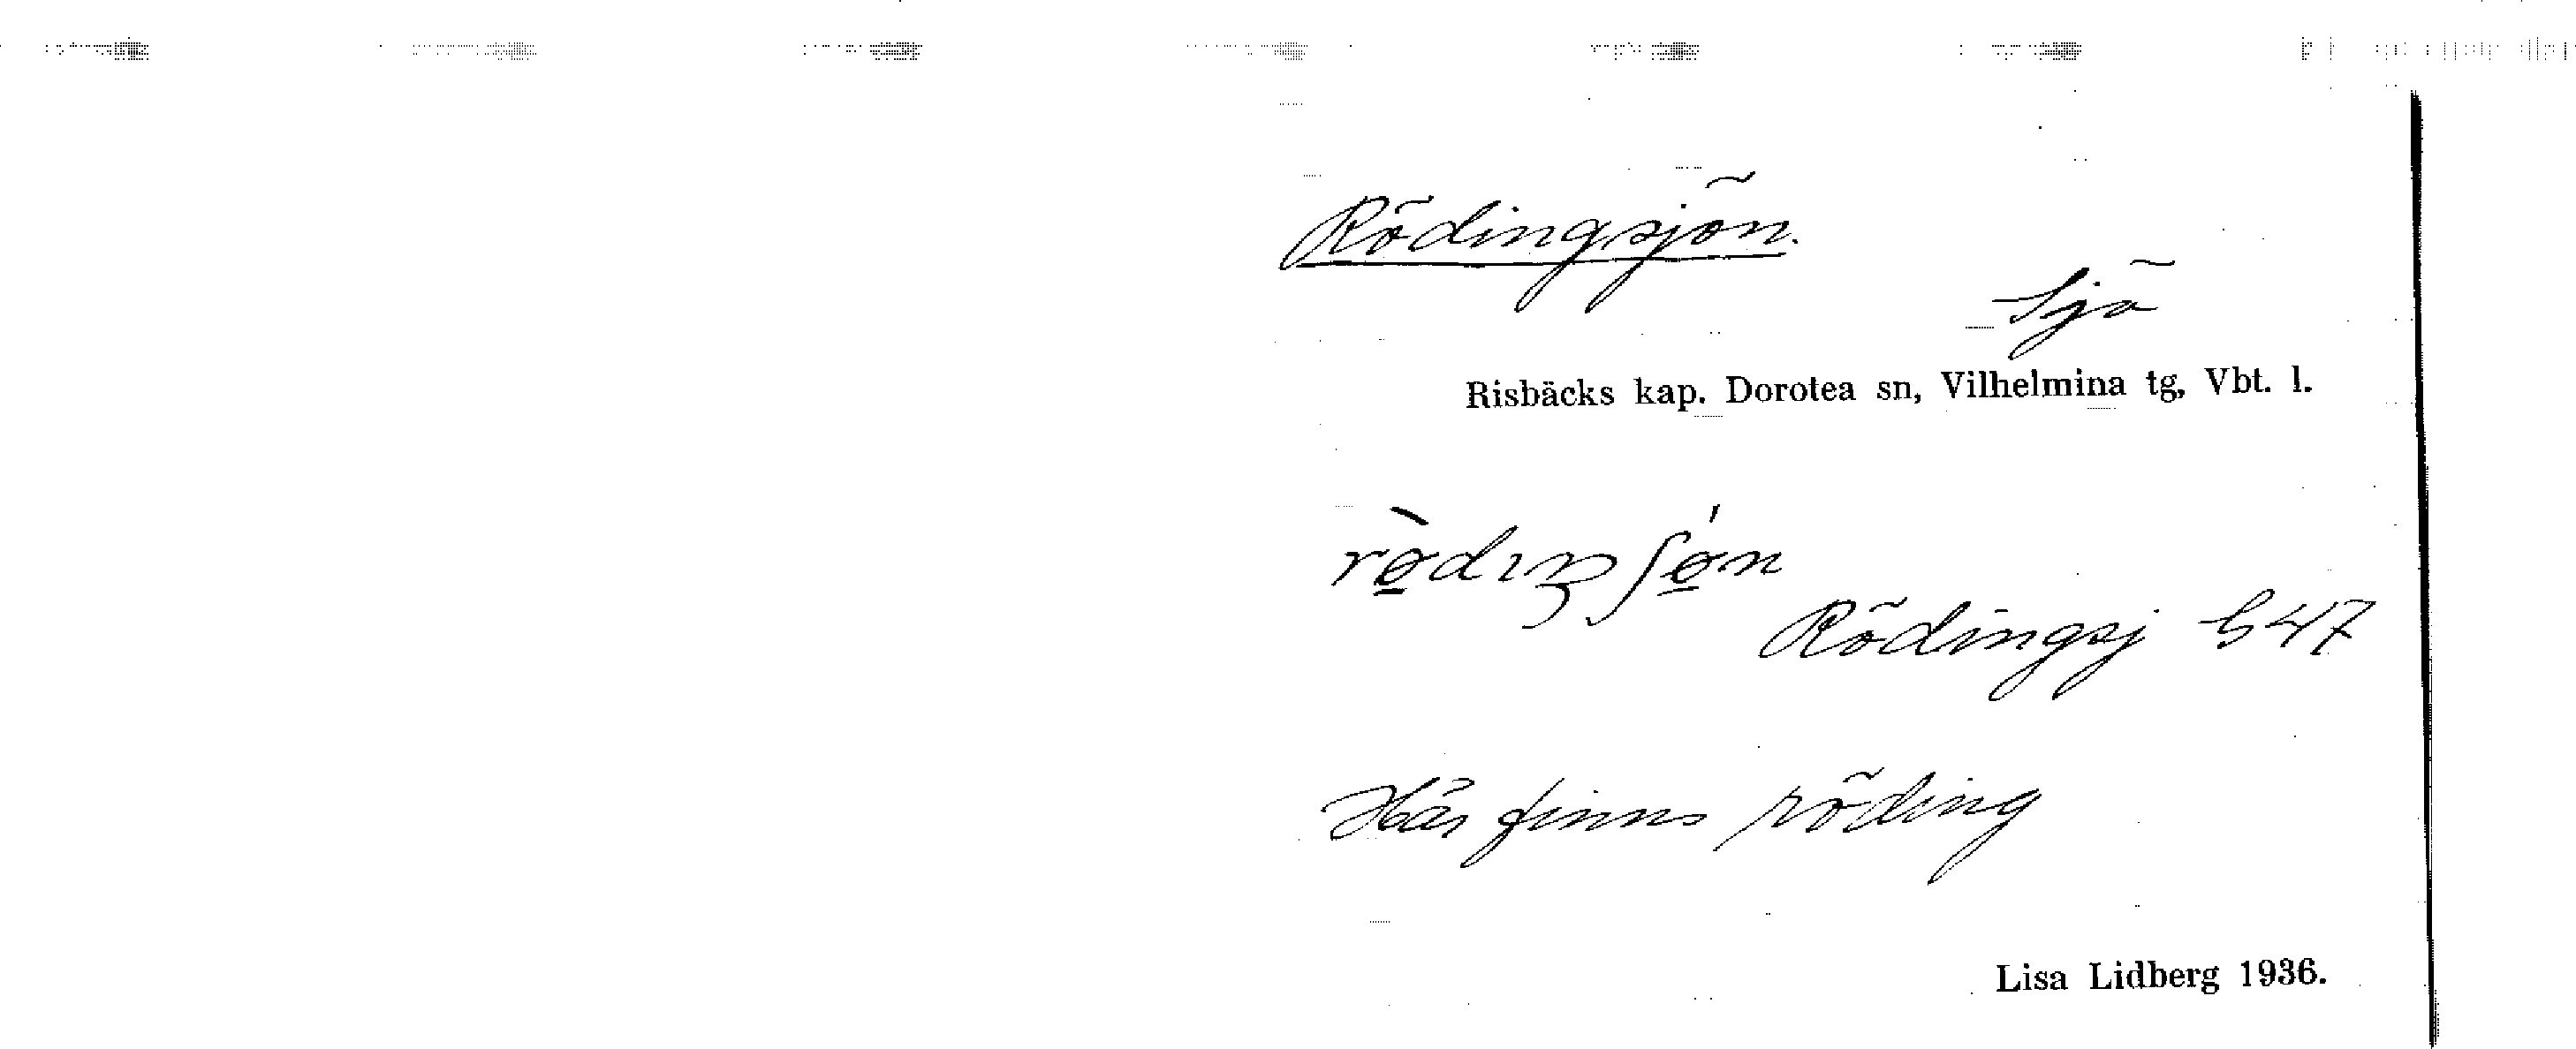 Rödingsjön.
Sjö
Risbäcks kap. Dorotea sn, Vilhelmina tg, Vbt. l.
rø̀dıŋʃø̀n
Rödingsj G47
Här finns röding
Lisa Lidberg 1936.